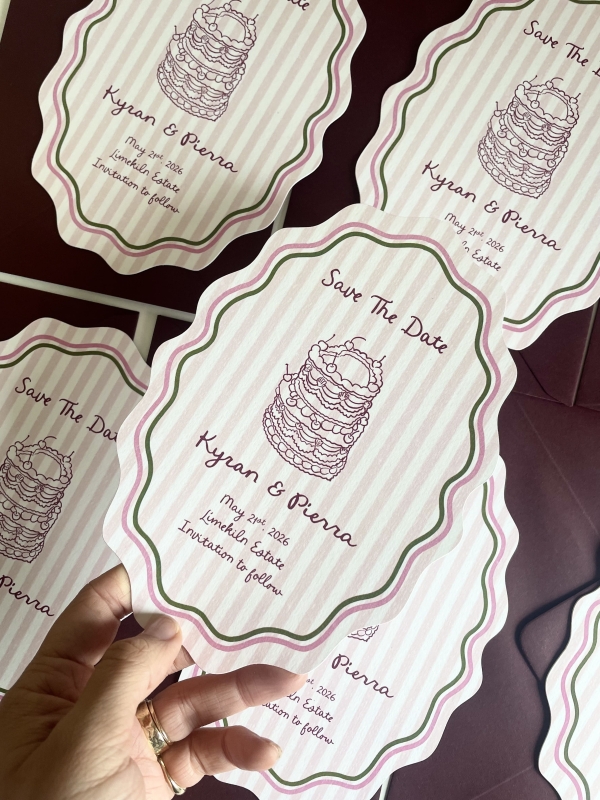 Kyran & Pierra
May 21st, 2026
Limekiln Estate
Invitation to follow
Save The D
Kyran & Pierra
May 21st, 2026
Estate
Save The Date
Kyran & Pierra
May 21st, 2026
Limekiln Estate
Invitation to follow
Save The Dat
Pierra
Pierra
2026
Estate
to follow